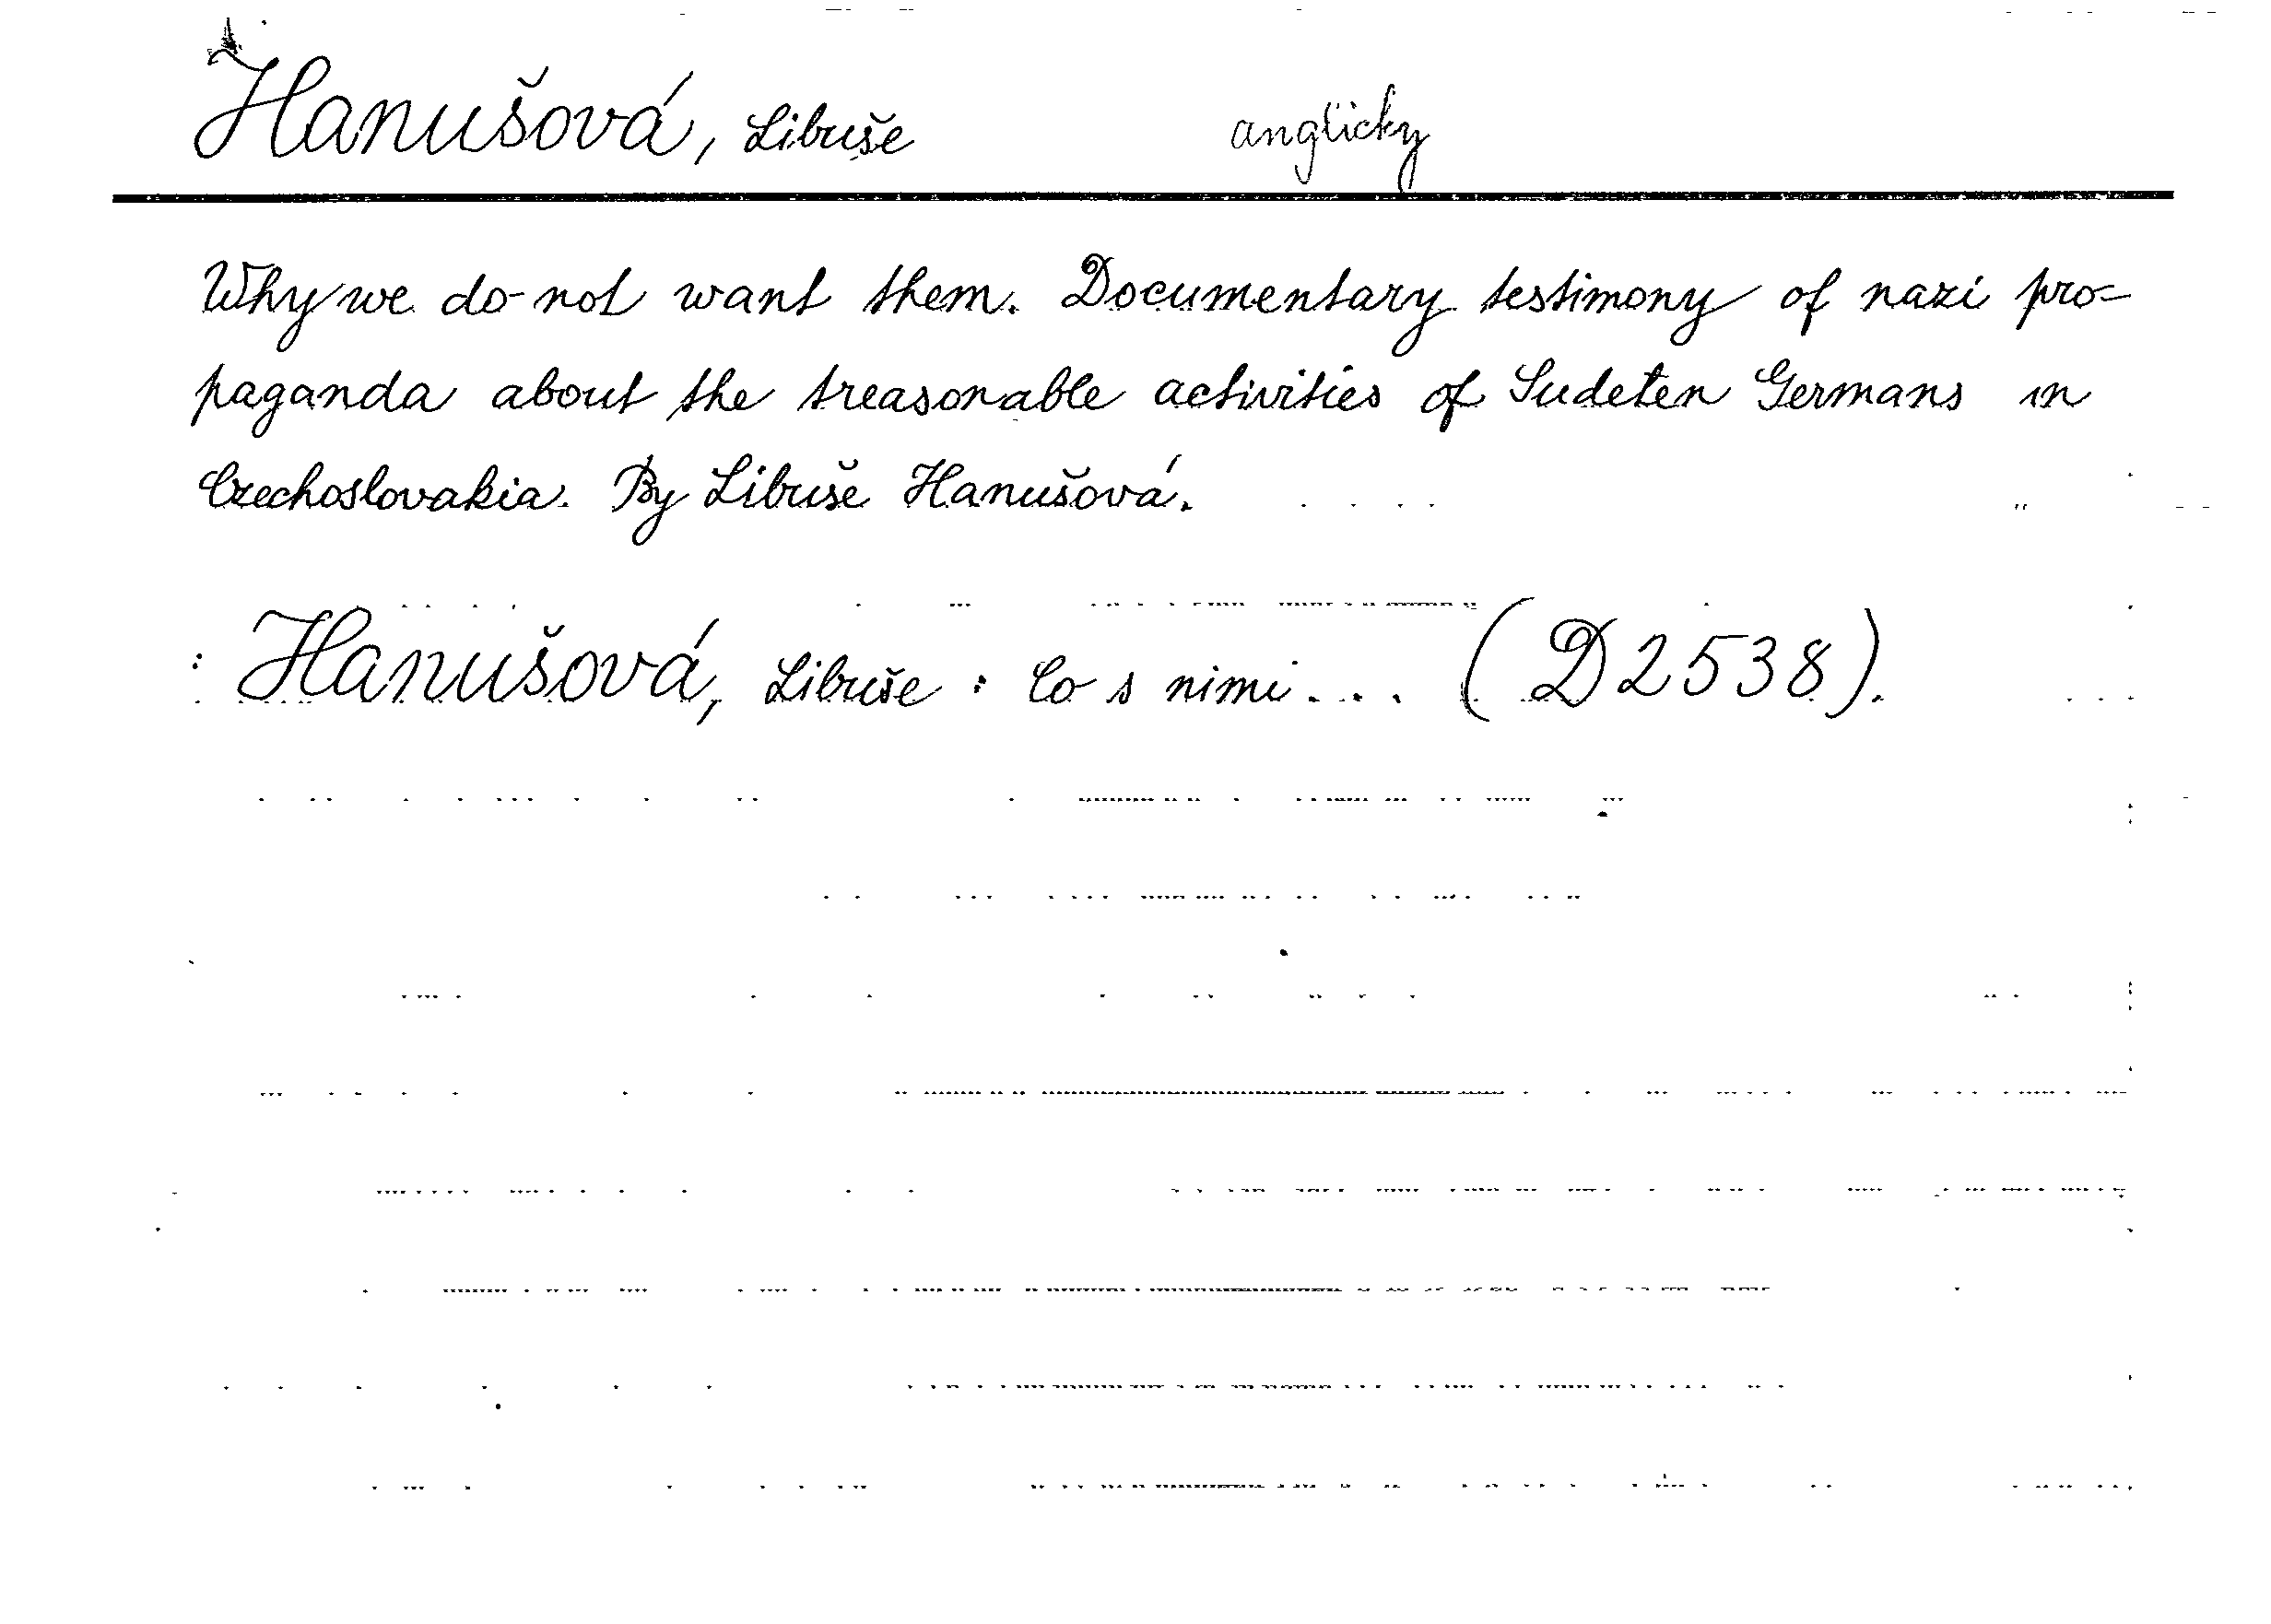 Hanušová, Libuše anglicky
Why we do not want them. Documentary testimony of nazi pro=
paganda about the treasonable activities of Sudeten Germans in
Czechoslovakia. By Libuše Hanušová.
: Hanušová, Libuše : Co s nimi... (D2538).